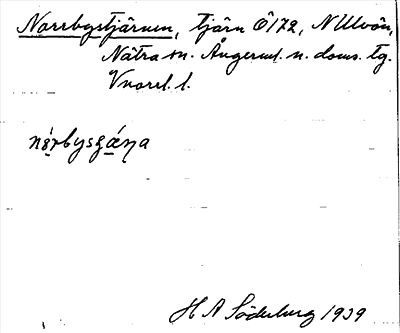 Norrbystjärnen, tjärn Ö172, N Ulvön,
Nätra sn. Ångerml. n. doms. tg.
V norrl. l.
H A Söderberg 1939